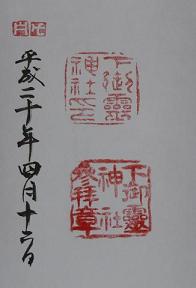 平成二十年四月十六日
下御霊
神社之印
下御靈
神社
参拜章